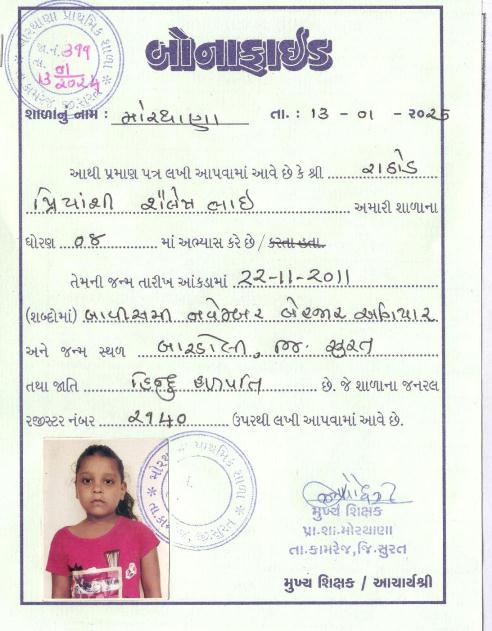 મોરથાણા પ્રાથમિક શાળા
જા.નં. ૩૧૧
તા. ૧૩/૦૧/૨૦૨૫
બોનાફાઈડ
શાળાનું નામ : મોરથાણા તા. : 13 - 01 - ૨૦૨૫
આથી પ્રમાણ પત્ર લખી આપવામાં આવે છે કે શ્રી રાઠોડ
પ્રિયાંશી શૈલેષ ભાઇ અમારી શાળાના
ધોરણ ૦૪ માં અભ્યાસ કરે છે / કરતા હતા.
તેમની જન્મ તારીખ આંકડામાં 22-11-2011
(શબ્દોમાં) બાવીસમી નવેમ્બર બેહજાર અગિયાર
અને જન્મ સ્થળ બારડોલી, જિ. સુરત
તથા જાતિ હિન્દુ હળપતિ છે. જે શાળાના જનરલ
રજીસ્ટર નંબર ૨૧૪૦ ઉપરથી લખી આપવામાં આવે છે.
મુખ્ય શિક્ષક
પ્રા.શા.મોરથાણા
તા.કામરેજ,જિ.સુરત
મુખ્ય શિક્ષક / આચાર્યશ્રી